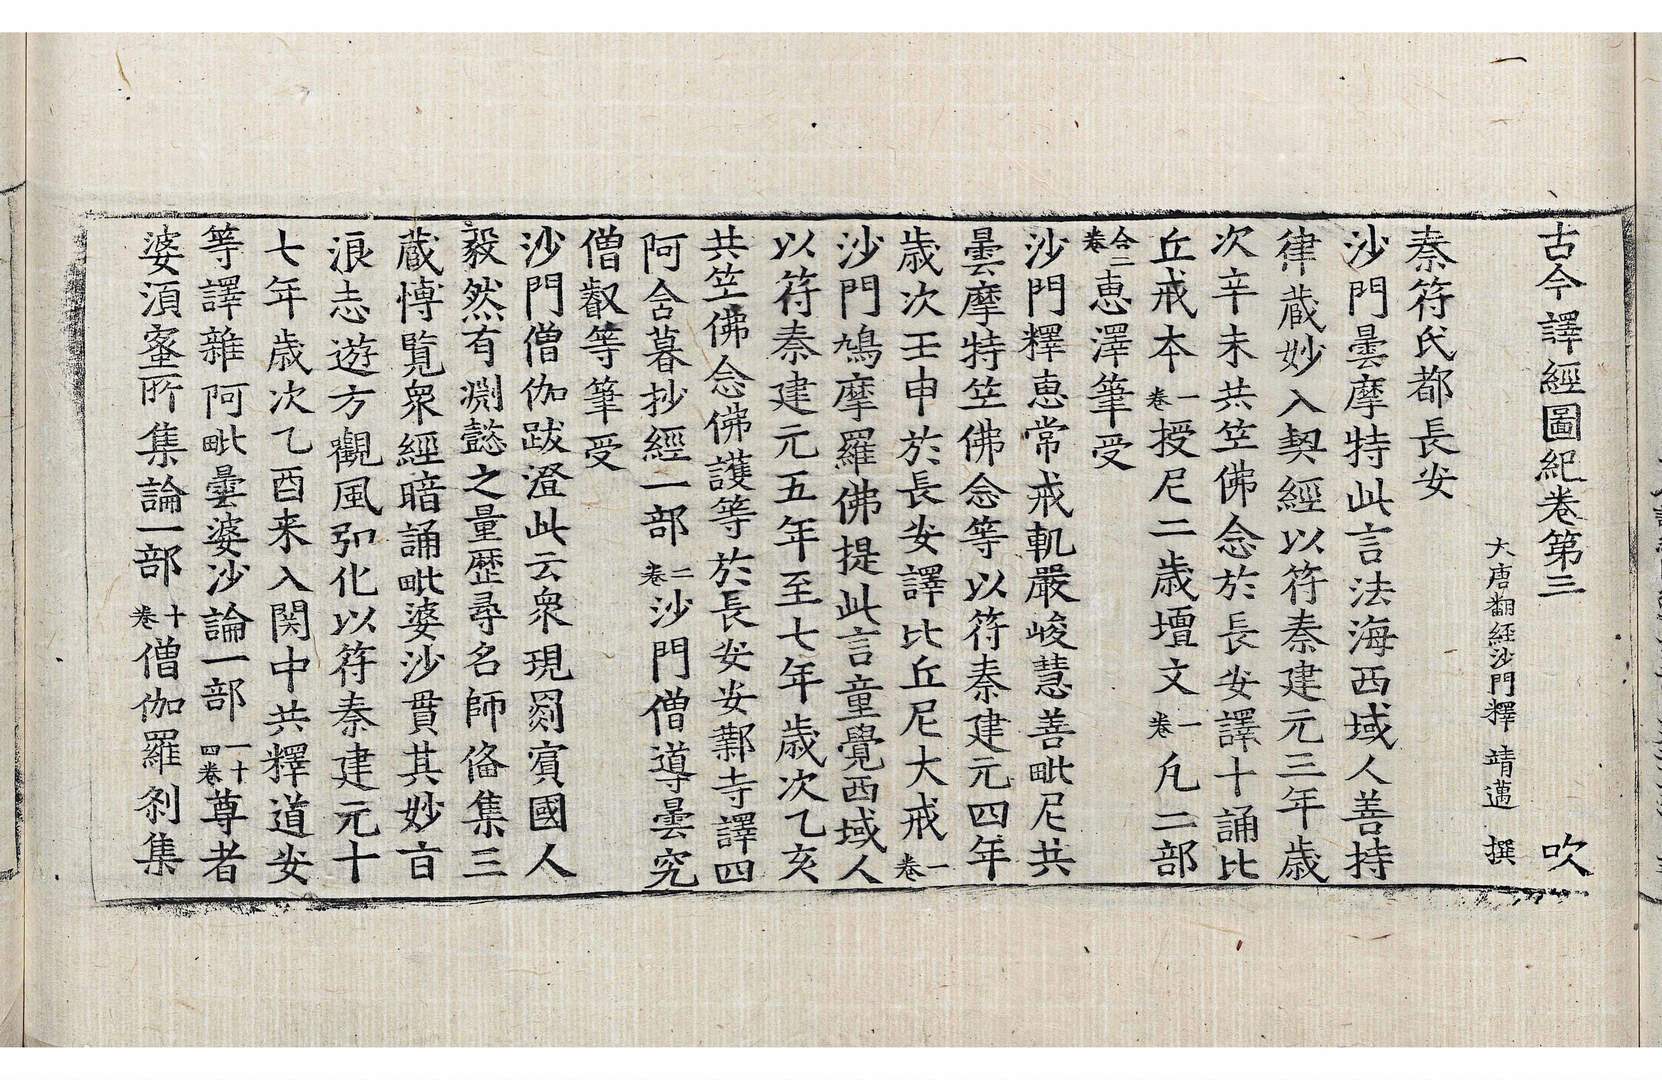 古今譯經圖紀卷第三　吹
大唐翻経沙門釋靖邁　撰
秦符氏都長安
沙門曇摩特此言法海西域人善持
律蔵妙入契經以符秦建元三年歳
次辛未共笁佛念於長安譯十誦比
丘戒本一卷授尼二歳壇文一卷凢二部
合二卷恵澤筆受
沙門釋恵常戒軌嚴峻慧善毗尼共
曇摩特笁佛念等以符秦建元四年
歳次壬申於長安譯比丘尼大戒一卷
沙門鳩摩羅佛提此言童覺西域人
以符秦建元五年至七年歳次乙亥
共笁佛念佛護等於長安安鄴寺譯四
阿含暮抄經一部二卷沙門僧導曇究
僧叡等筆受
沙門僧伽跋澄此云衆現罽賔國人
毅然有淵懿之量歴尋名師俻集三
蔵博覧衆經暗誦毗婆沙貫其妙㫖
浪志遊方觀風弘化以符秦建元十
七年歳次乙酉来入関中共釋道安
等譯雜阿毗曇婆沙論一部一十四卷尊者
婆湏蜜所集論一部十卷僧伽羅刹集